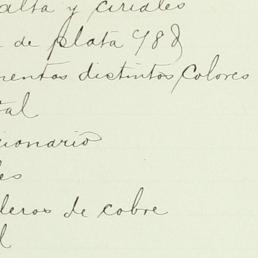 alta y ciriales
de plata 98
mentos distintos colores
tal
cionario
les
deros de cobre
l